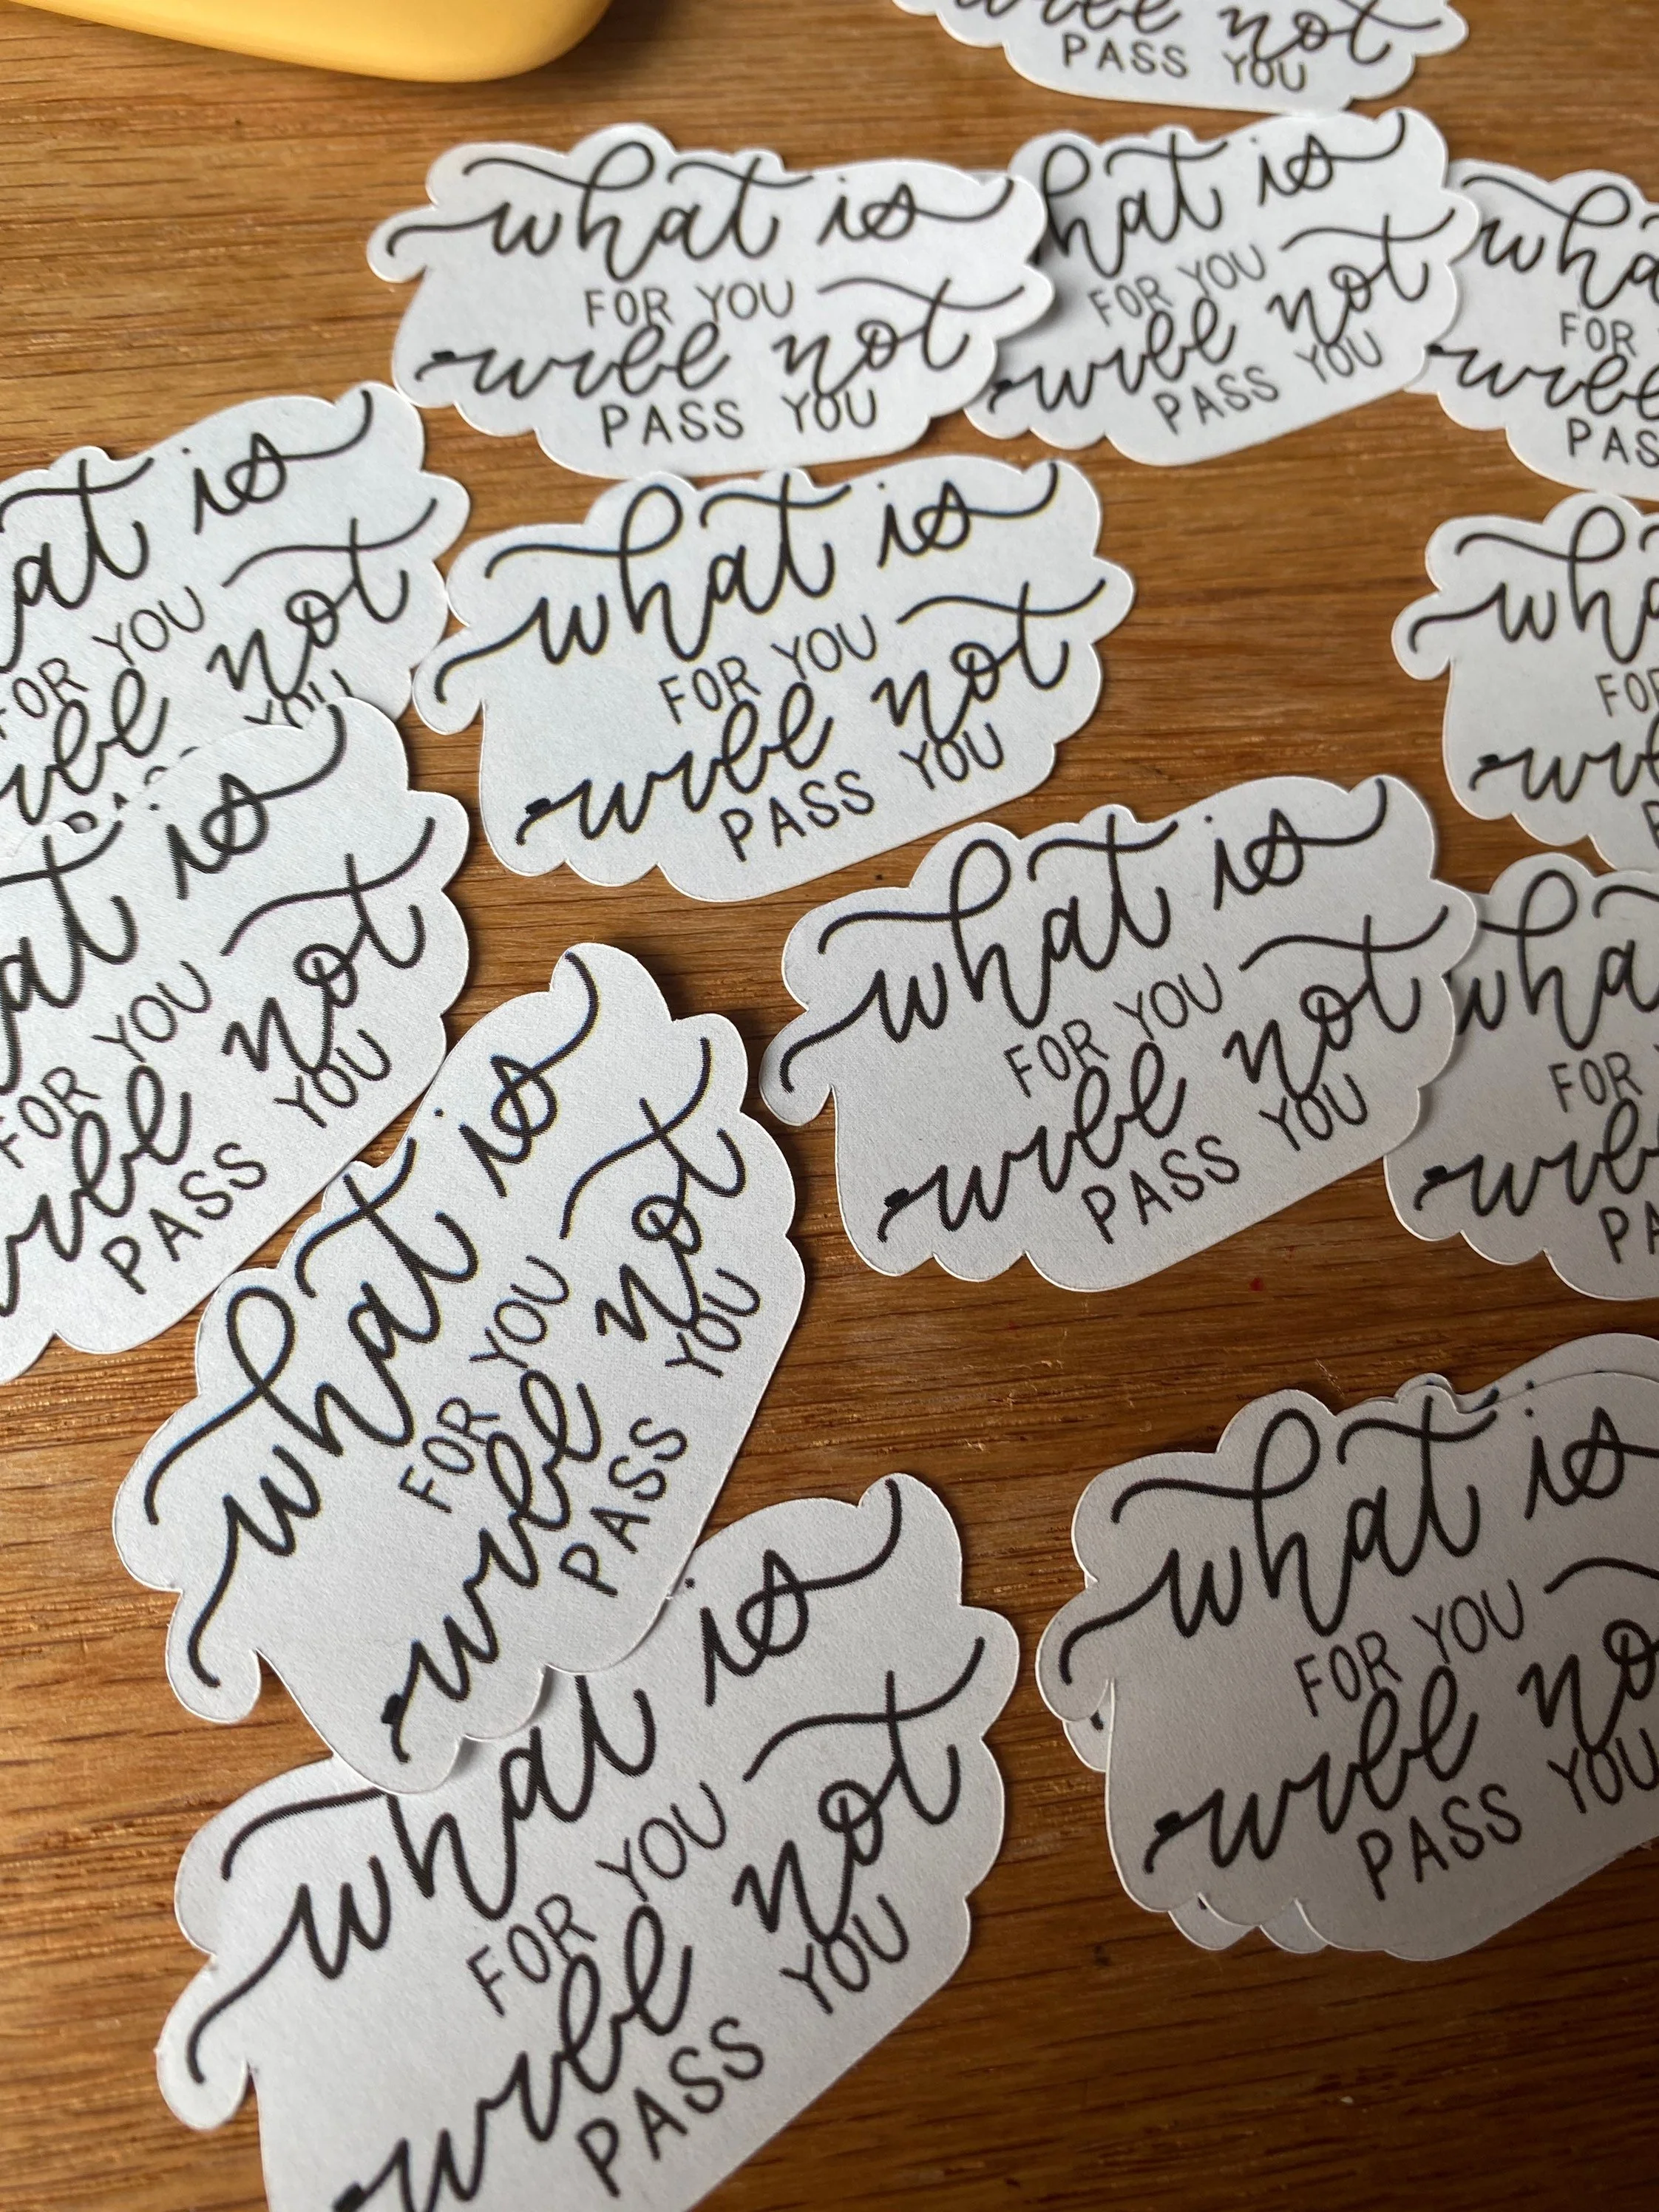 will not
PASS YOU
what is
FOR YOU
will not
PASS YOU
is
FOR YOU
will not
PASS YOU
FOR
will
is
FOR YOU
will not
YOU
what is
FOR YOU
will not
PASS YOU
is
FOR YOU
will not
PASS YOU
what is
FOR YOU
will not
PASS YOU
FOR
will
what is
FOR YOU
will not
PASS YOU
what is
FOR YOU
will
PASS YOU
what is
FOR YOU
will not
PASS YOU